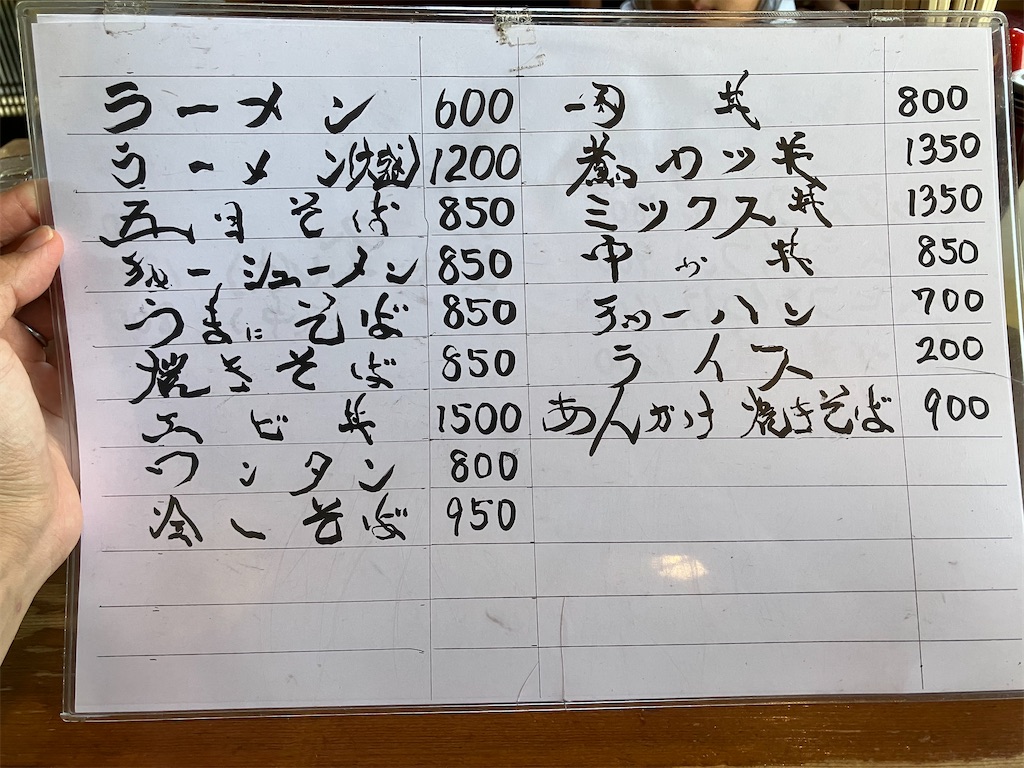 ラーメン 600
ラーメン(大盛) 1200
五目そば 850
チャーシューメン 850
うまにそば 850
焼きそば 850
エビ丼 1500
ワンタン 800
冷しそば 950
丼 800
煮カツ丼 1350
ミックス丼 1350
中か丼 850
チャーハン 700
ライス 200
あんかけ焼きそば 900